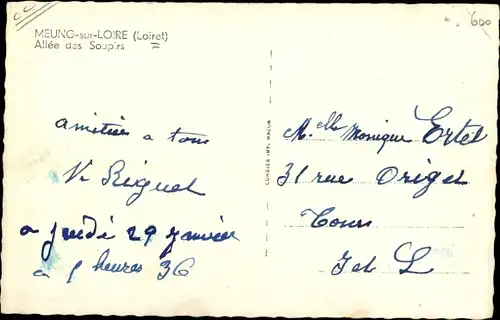 MEUNG-sur-LOIRE (Loiret)
Allée des Soupirs
600
amitiés a tous
V. Riguet
a jeudi 29 janvier
a 1 heures 36
COMBIER IMP. MACON
Melle Monique Ertel
31 rue Origet
Tours
I et L